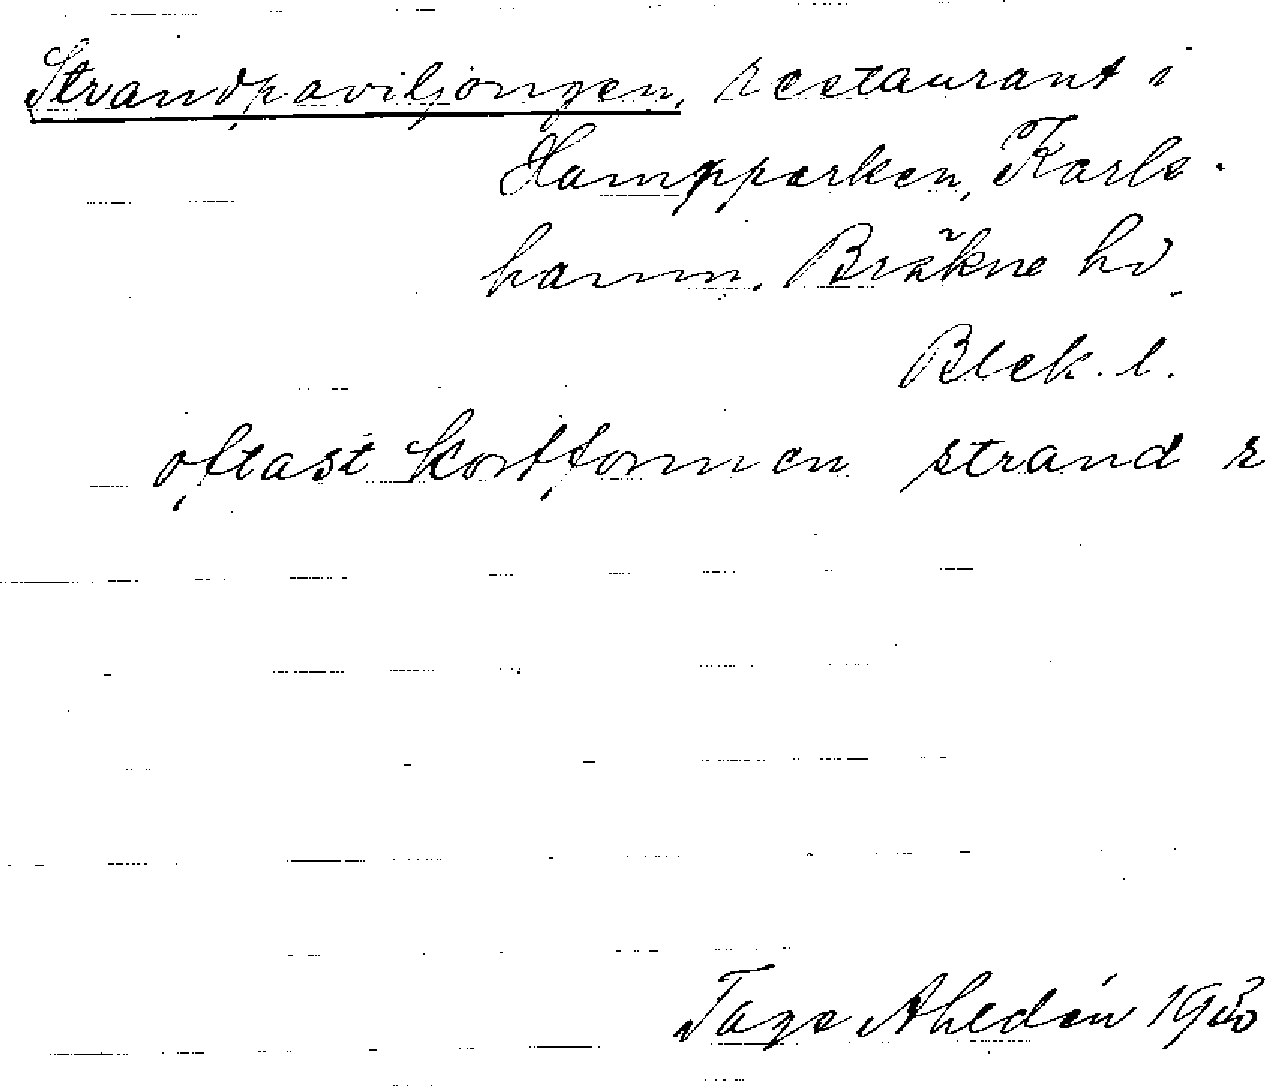 Strandpaviljongen, restaurant i
Hamnparken, Karls-
hamn. Bräkne hd
Blek. l.
oftast kortformen strand s
Tage Ahldén